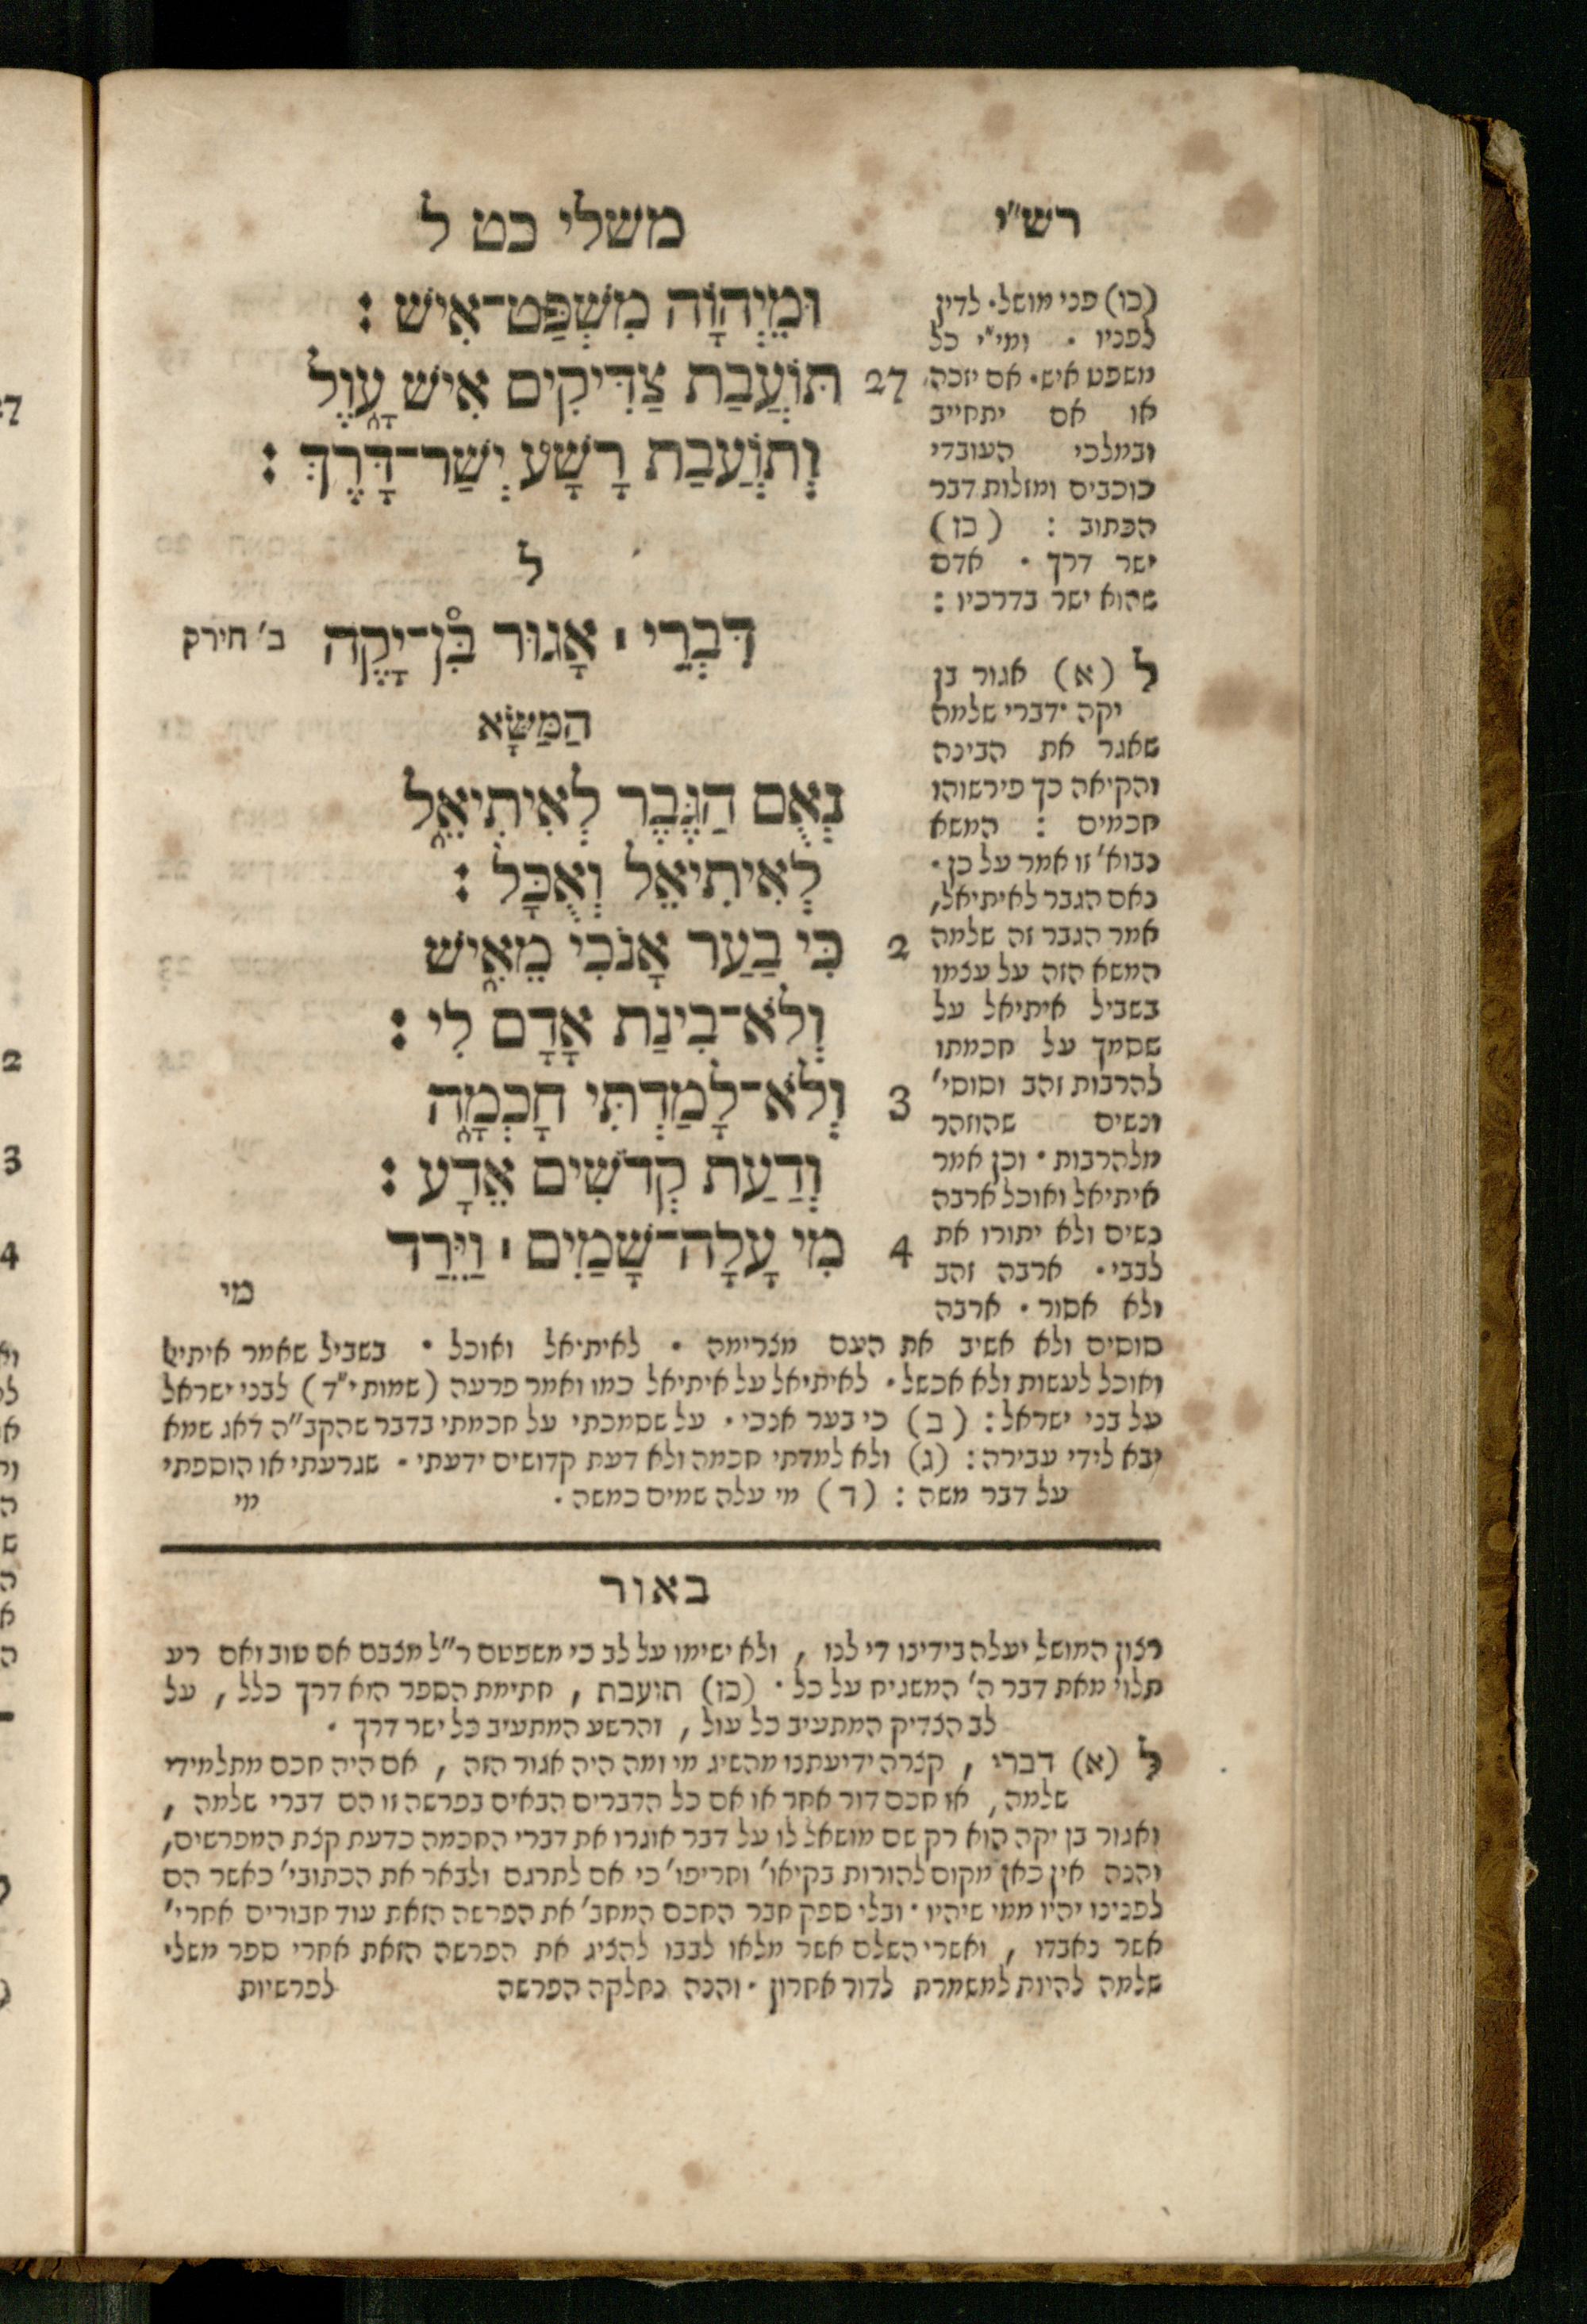 רש״י
משלי כט ל
וּמֵיְהוָֹה מִשְׁפַּט־אִישׁ :
27 תּוֹעֲבַת צַדִּיקִים אִישׁ עָוֶל
וְתוֹעֲבַת רָשָׁע יְשַׁר־דָּרֶךְ :
ל
דִּבְרֵי ׀ אָגוּר בִּן־יָקֶה ב׳ חירק
הַמַּשָּׂא
נְאֻם הַגֶּבֶר לְאִיתִיאֵל
לְאִיתִיאֵל וְאֻכָל :
2 כִּי בַעַר אָנֹכִי מֵאִישׁ
וְלֹא־בִינַת אָדָם לִי :
3 וְלֹא־לָמַדְתִּי חָכְמָה
וְדַעַת קְדֹשִׁים אֵדָע :
4 מִי עָלָה־שָׁמַיִם ׀ וַיֵּרַד
מי
(כו) פני מושל· לדין
לפניו · ומי״י כל
משפט איש· אם יזכה
או אם יתחייב
ובמלכי העובדי
כוכבים ומזלות דבר
הכתוב : (כז)
ישר דרך · אדם
שהוא ישר בדרכיו :
ל (א) אגור בן
יקה · דברי שלמה
שאגר את הבינה
והקיאה כך פירשוהו
חכמים : המשא
נבוא׳ זו אמר על כן ·
נאם הגבר לאיתיאל,
אמר הגבר זה שלמה
המשא הזה על עצמו
בשביל איתיאל על
שסמך על חכמתו
להרבות זהב וסוסי׳
ונשים שהוזהר
מלהרבות · וכן אמר
איתיאל ואוכל ארבה
נשים ולא יתורו את
לבבי· ארבה זהב
ולא אסור · ארבה
סוסים ולא אשיב את העם מצרימה · לאיתיאל ואוכל · בשביל שאמר איתיאל
ואוכל לעשות ולא אכשל · לאיתיאל על איתיאל כמו ואמר פרעה (שמות י״ד) לבני ישראל
על בני ישראל : (ב) כי בער אנכי · על שסמכתי על חכמתי בדבר שהקב״ה דאג שמא
יבא לידי עבירה : (ג) ולא למדתי חכמה ולא דעת קדושים ידעתי · שגרעתי או הוספתי
על דבר משה : (ד) מי עלה שמים כמשה · מי
באור
רצון המושל יעלה בידינו די לנו , ולא ישימו על לב כי משפטם ר״ל מצבם אם טוב ואם רע
תלוי מאת דבר ה׳ המשגיח על כל · (כז) תועבת , חתימת הספר הזא דרך כלל , על
לב הצדיק המתעיב כל עול , והרשע המתעיב כל ישר דרך ·
ל (א) דברי , קצרה ידיעתנו מהשיג מי ומה היה אגור הזה , אם היה חכם מתלמידי
שלמה, או חכם דור אחר או אם כל הדברים הבאים בפרשה זו הם דברי שלמה ,
ואגור בן יקה הוא רק שם מושאל לו על דבר אוגרו את דברי החכמה כדעת קצת המפרשים,
והנה אין כאן מקום להורות בקיאו׳ וחריפו׳ כי אם לתרגם ולבאר את הכתובי׳ כאשר הם
לפנינו יהיו ממי שיהיו · ובלי ספק חבר החכם המחב׳ את הפרשה הזאת עוד חבורים אחרי׳
אשר נאבדו , ואשרי השלם אשר מלאו לבבו להציג את הפרשה הזאת אחרי ספר משלי
שלמה להיות למשמרת לדור אחרון · והנה נחלקה הפרשה לפרשיות